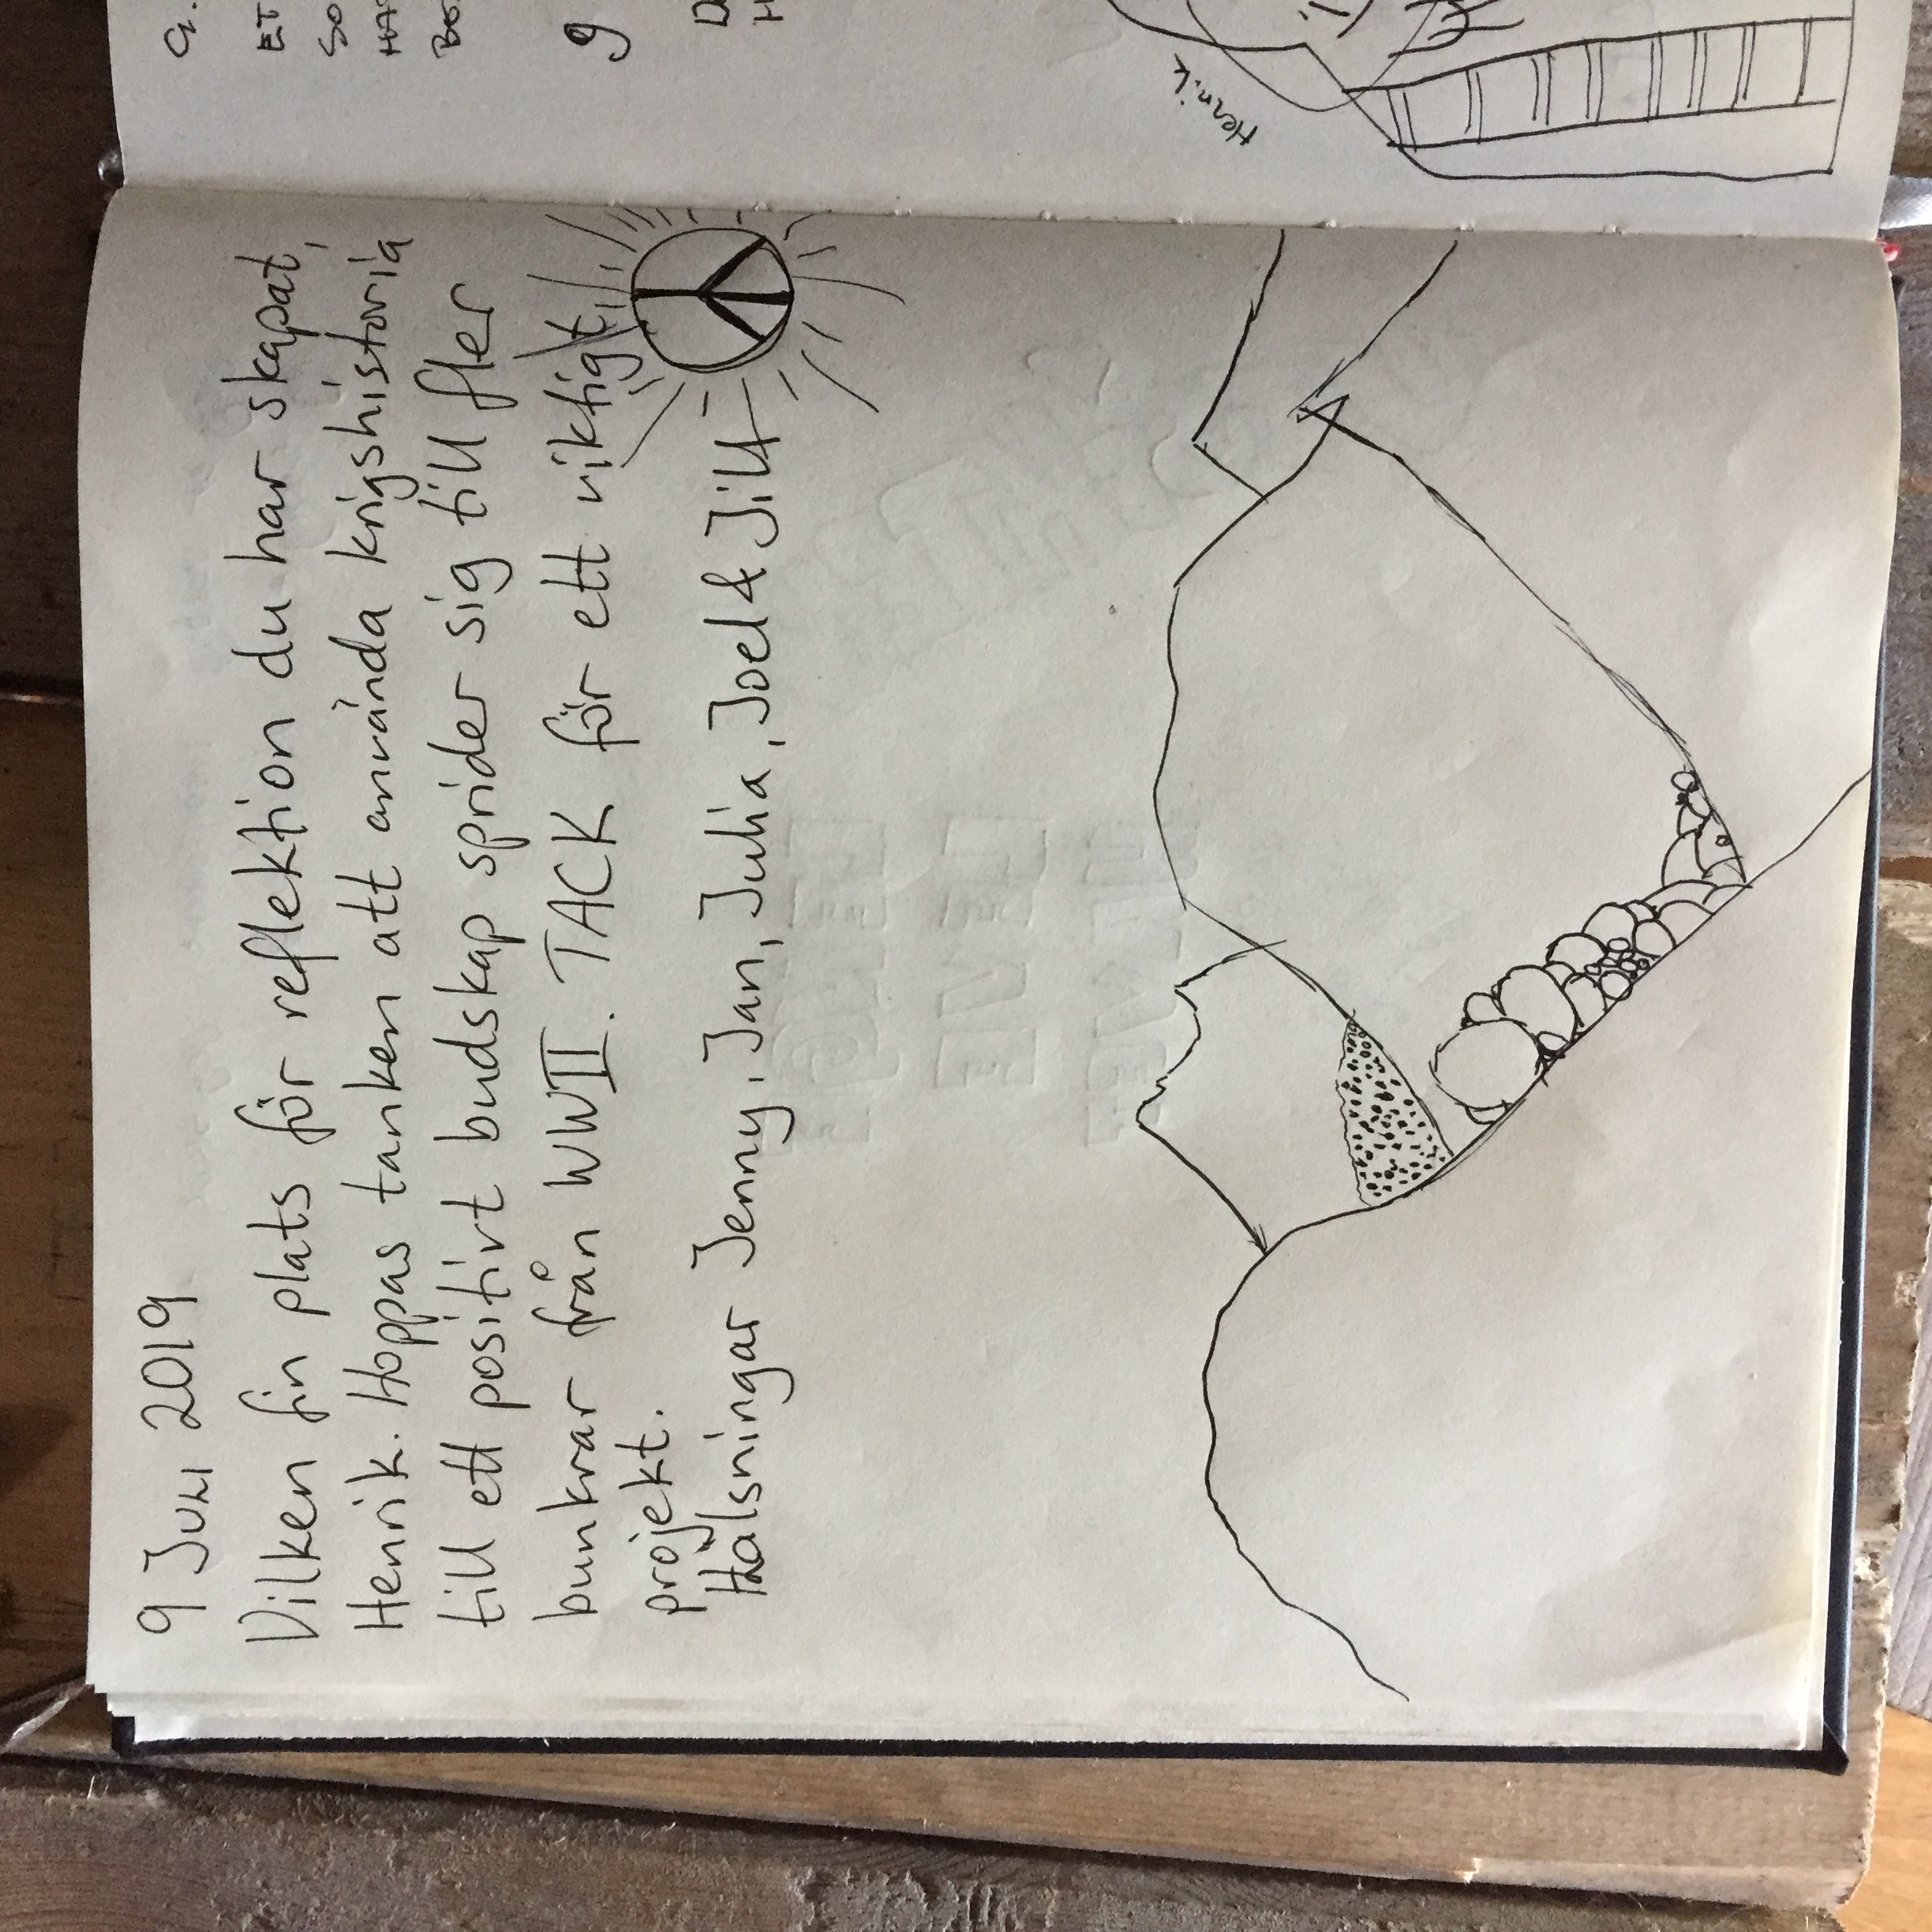 9 JUNI 2019
Vilken fin plats för reflektion du har skapat,
Henrik. Hoppas tanken att använda krigshistoria
till ett positivt budskap sprider sig till fler
bunkrar från WWII. TACK för ett viktigt
projekt.
Hälsningar Jenny, Jan, Julia, Joel & Jill
Henrik
ET
SO
HAR
9